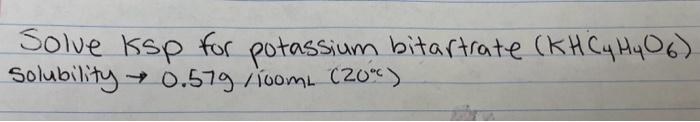 Solve Ksp for potassium bitartrate (KHC4H4O6)
Solubility → 0.57g /100mL (20°C)